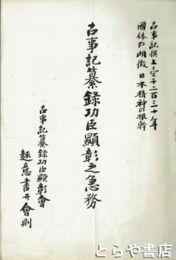 古事記撰上一千二百三十年
國体の明徴日本精神の根幹
古事記纂録功臣顯彰之急務
古事記纂録功臣顯彰會
趣意書并會則
とらや書店